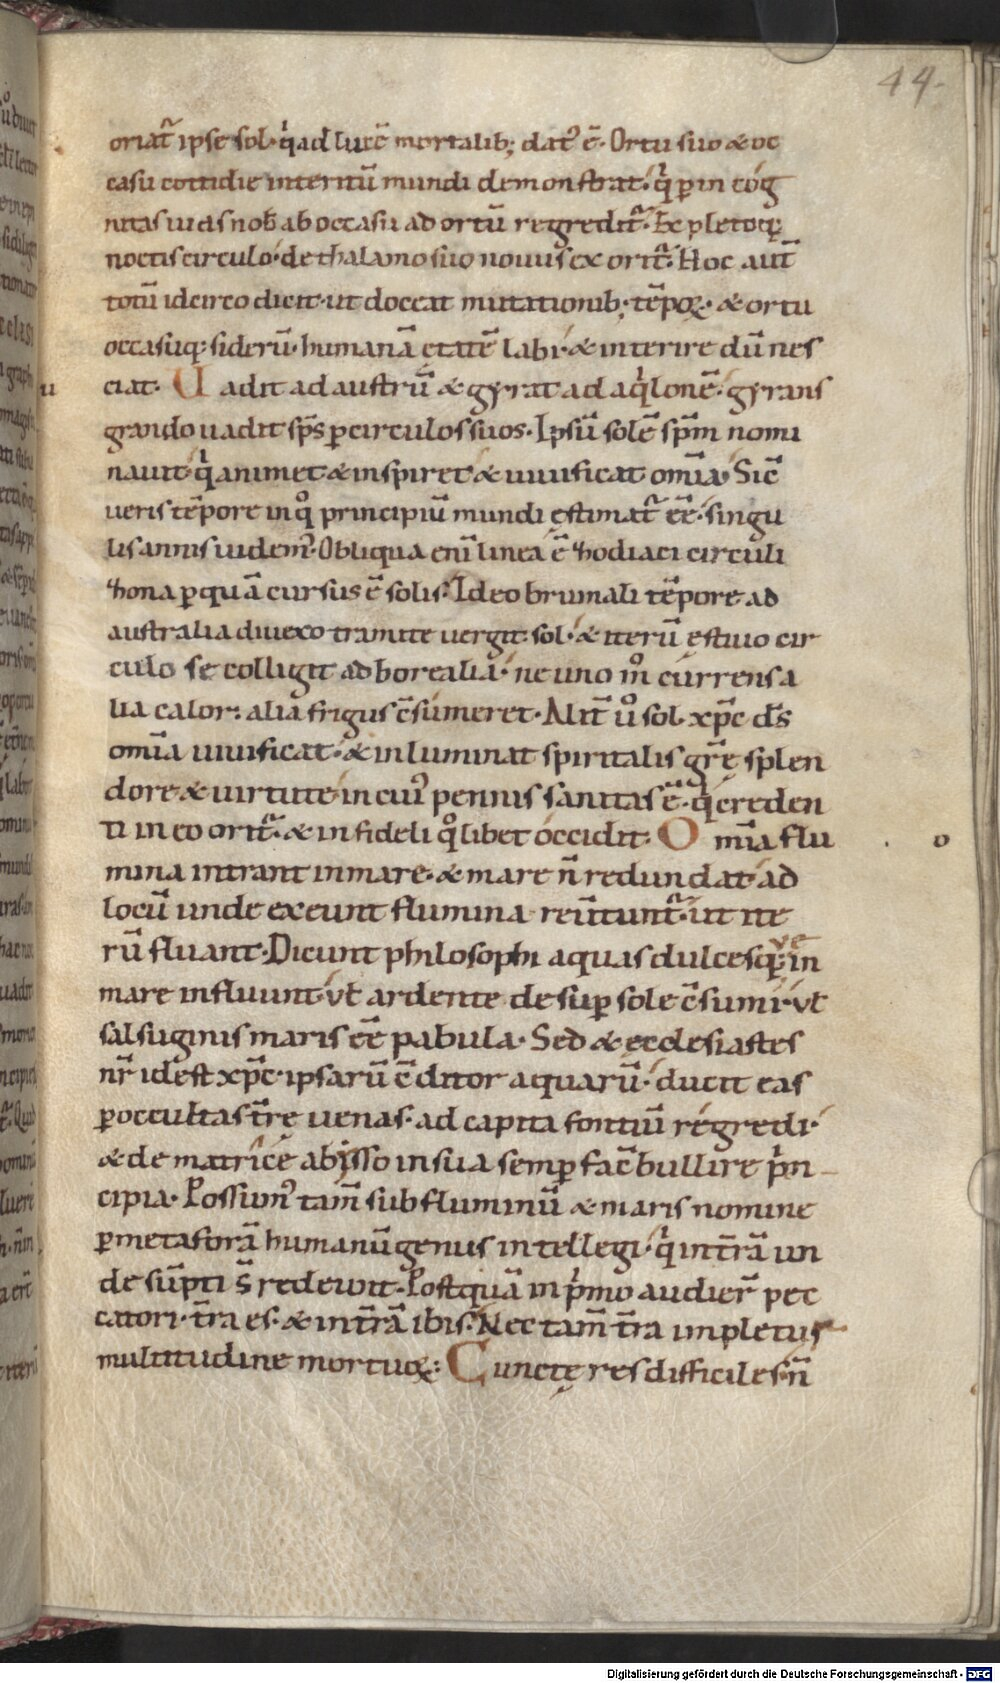 44.
oriat᷑ ipse sol· q̇ ad lucē mortalib; dat᷒ ē· Ortu suo & oc
casu cottidie interitū mundi demonstrat· q̇ p̱ in cog
nitas uias nob̄ ab occasu ad ortū regredit᷑· Expletoq;
noctis circulo· de thalamo suo nouus ex orit᷑· Hoc aut̄
totū idcirco dicit· ut doceat mutationib; tēpoꝝ· & ortu
occasuq; siderū· humanā ętatē labi· & interire dū nes
u ciat· Uadit ad austrū & gyrat ad aq̇lonē· gyrans
girando uadit sp̄s p̱ circulos suos· Ipsū solē sp̄m nomi
nauit· q̇ animet & inspiret & uiuificat om̄ia· Sic̄
ueris tēpore in qͦ principiū mundi ęstimat᷑ eē· singu
lis annis uidem᷒· Obliqua eni̅ linea ē thodiaci circuli
thona p̱ quā cursus ē solis· Ideo brumali tēpore ad
australia diuexo tramite uergit sol· & iterū ęstiuo cir
culo se colligit ad borealia· ne uno mͦ currens a
lia calor: alia frigus c̄sumeret· Alit̄ uͦ sol xp̄c d̄s
om̄ia uiuificat· & inluminat spiritalis gr̄ę splen
dore & uirtute· in cui᷒ pennis sanitas ē· q̇ creden
ti in eo orit᷑· & infideli qͦlibet occidit· Om̄ia flu o
mina intrant in mare· & mare n̄ redundat· ad
locū unde exeunt flumina reūtunt᷑· ut ite
rū fluant· Dicunt philosophi aquas dulces q; in
ve
mare influunt· ut̄ ardente desup̱ sole c̄sumi· ut̄
salsuginis maris eē pabula· Sed & ecclesiastes
nr̄ idest xp̄c· ipsarū c̄ditor aquarū· ducit eas
p̱ occultas t̄rę uenas· ad capita fontiū regredi·
& de matrice abisso in sua semp̱ fac̄ bullire p̓n
cipia· Possum᷒ tam̄ sub fluminū & maris nomine
p̱ metaforā humanū genus intellegi· q̇ in t̄rā un
de sūpti s̄ redeunt· Postquā in p̓mo audier̄ pec
catori· t̄ra es· & in t̄rā ibis· Nec tam̄ t̄ra impletur
multitudine mortuoꝝ: Cunctę res difficiles· n̄
Digitalisierung gefördert durch die Deutsche Forschungsgemeinschaft - DFG